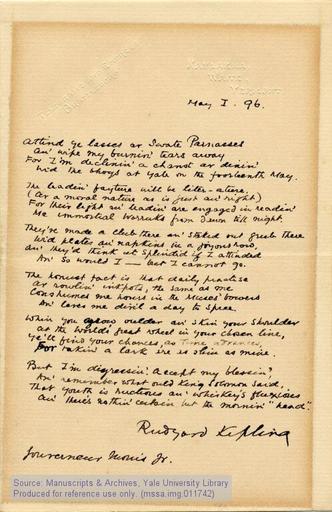 NAULAKHA
WAITE
VERMONT
May 1. 96.
Attend ye lasses av Swate Parnasses
An' wipe my burnin' tears away
For I'm declinin' a chanst av dinin'
Wid the bhoys at Yale on the foorteenth May.
The leadin' fayture will be liter-ature,
(Av a moral nature as is just an' right)
For their light an' leadin' are engaged in readin'
Me immortial worruks from dawn till night.
They've made a club there an' staked out grub there
Wid plates an' napkins in a joyous row,
An' they'd think ut splendid if I attended
An' so would I — but I cannot go.
The honust fact is that daily practise
Av rowlin' inkpots, the same as me
Conshumes me hours in the Muses' bowers
An' laves me divil a day to spree.
Whin you grow oulder an' skin your shoulder
At the World's great wheel in your chosen line,
Ye'll find your chances, as time advances,
For takin' a lark are as slim as mine.
But I'm digressin'. Accept my blessin',
An' remember what ould King Solomon said,
That youth is ructious an' whiskey's fluxious
An' there's nothin' certain but the mornin' "head".
Rudyard Kipling
Gouverneur Morris Jr.
Source: Manuscripts & Archives, Yale University Library
Produced for reference use only. (mssa.img.011742)